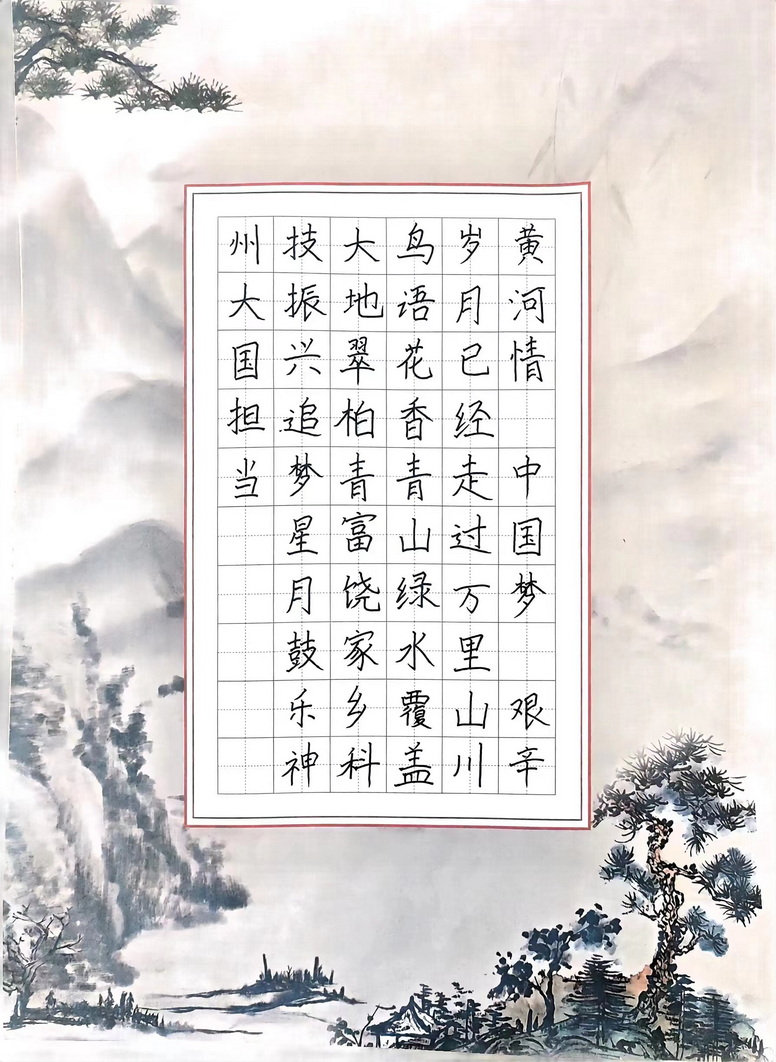 黄河情 中国梦 艰辛
岁月已经走过万里山川
鸟语花香青山绿水覆盖
大地翠柏青富饶家乡科
技振兴追梦星月鼓乐神
州大国担当